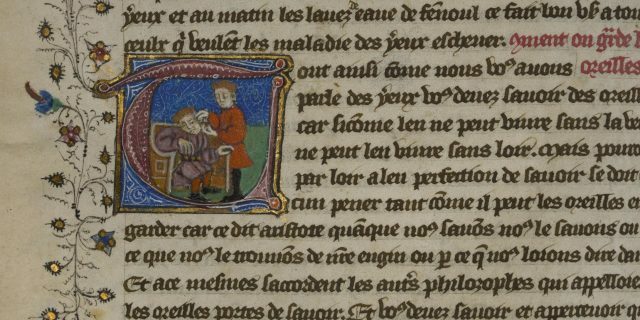 yeux et au matin les lauez deaue de fenoul ce fait lon vse a tou
ceulz q̃ veulent les maladie des yeux escheuer. Ment on gr̃de l
Tout ainsi cõme nous voˢ auons oreilles
parle des yeux voˢ deuez sauoir des oreill
car sicõme len ne peut viure sans la ve
ne peut len viure sans loir. Mais pour
par loir a leu perfection de sauoir se doit
cun pener tant cõme il peut les oreilles
garder car ce dit aristote quãque noˢ sauõs noˢ le sauons ou
ce que noˢ le trouuõs de nr̃e engin ou p ce q̃ noˢ loions dire da
Et ace meismes saccordent les autˢ philozophes qui appelloie
les oreilles portes de sauoir. Et voˢ deuez sauoir et apperceuoir q